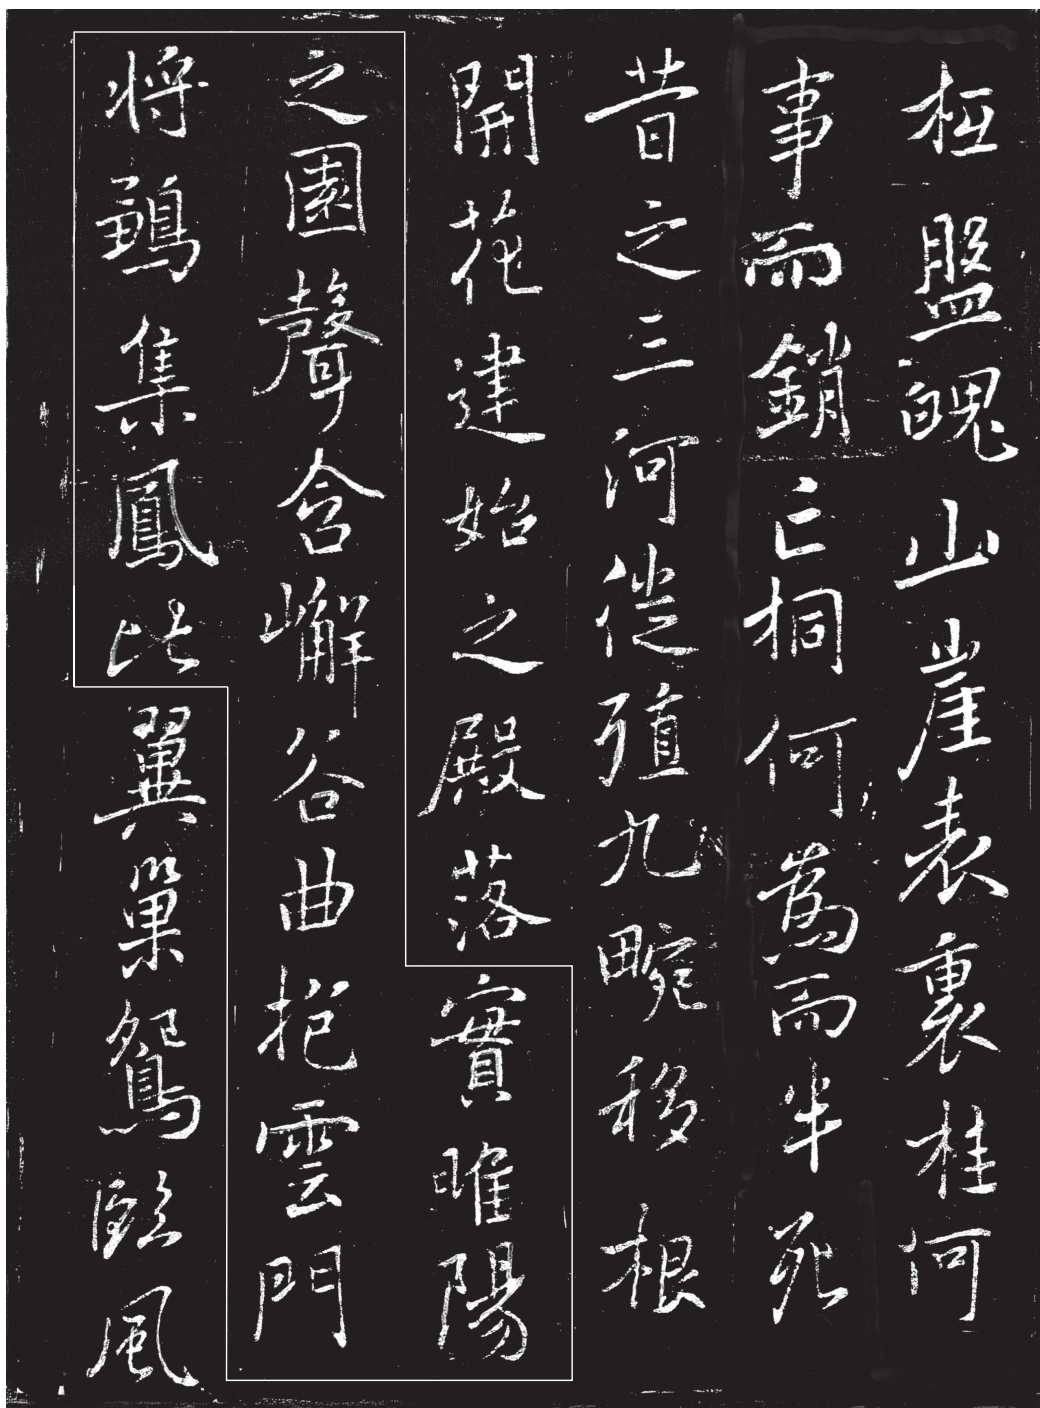 柢盤魄山崖表裏桂何
事而銷亡桐何為而半死
昔之三河徙殖九畹移根
開花建始之殿落實睢陽
之園聲含嶰谷曲抱雲門
將鶵集鳳比翼巢鴛臨風